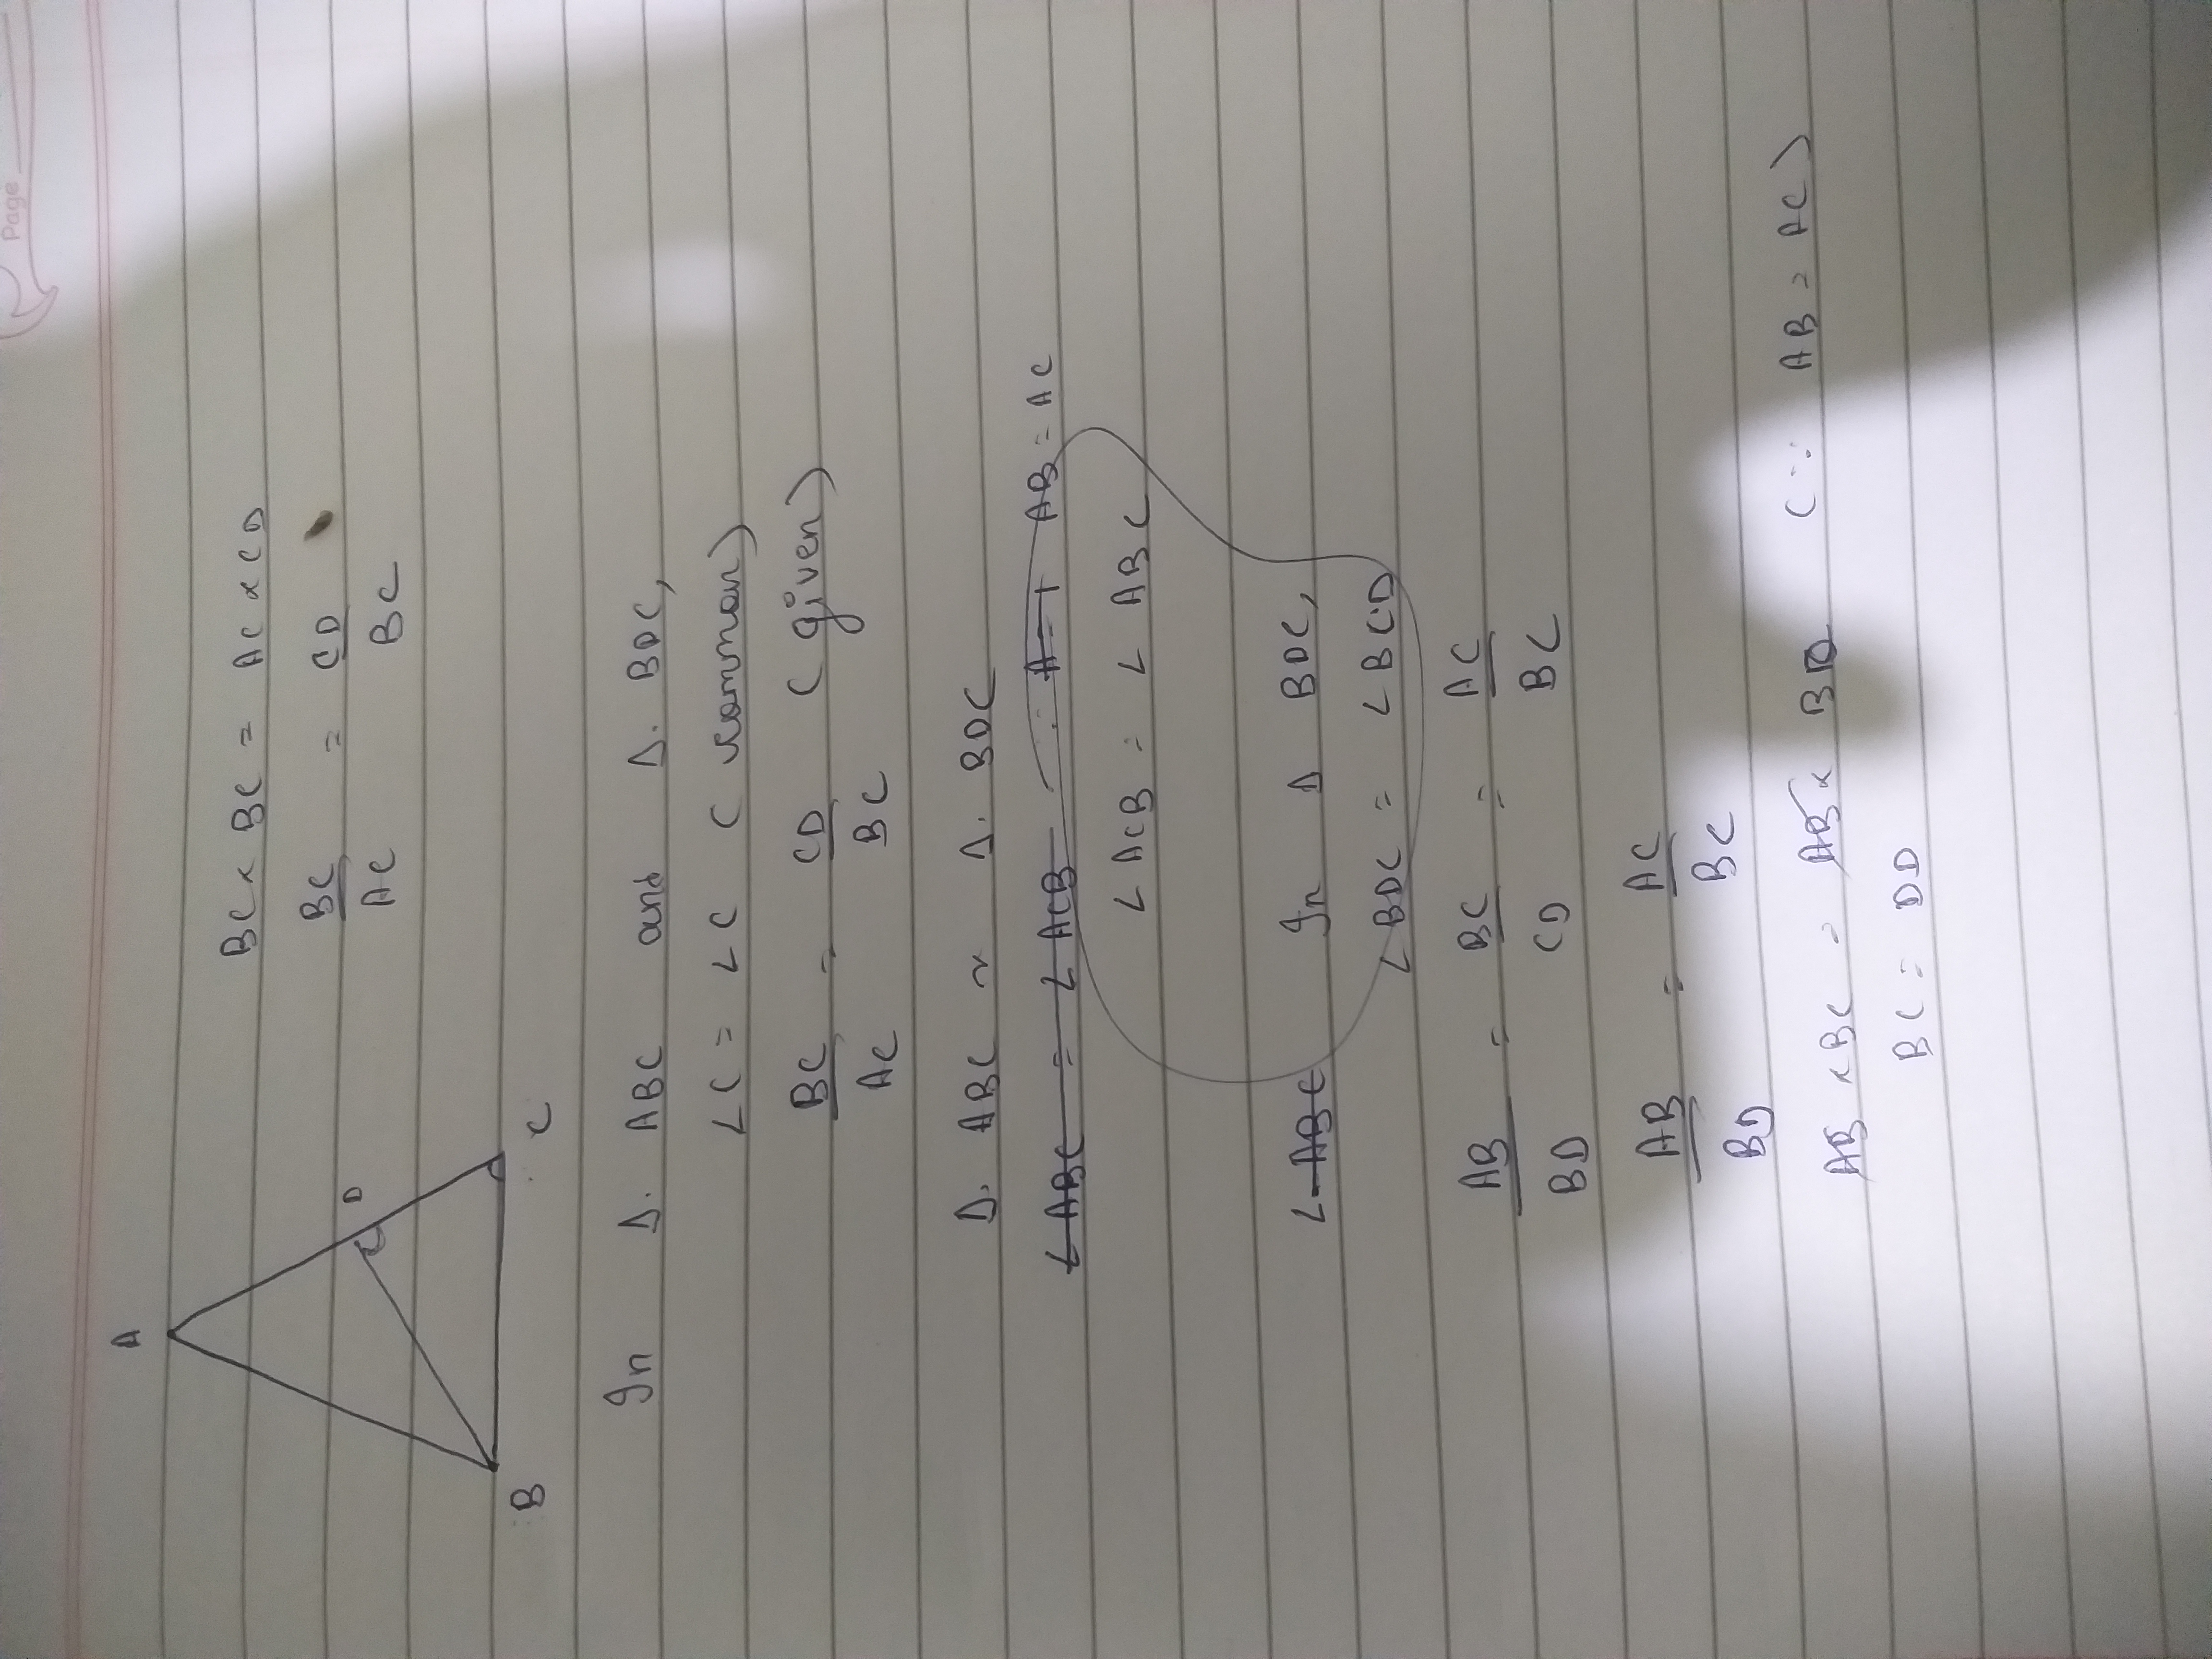 Page
A
D
B
C
BC × BC = AC × CD
BC/AC = CD/BC
In Δ. ABC and Δ. BDC,
∠C = ∠C (common)
BC/AC = CD/BC (given)
Δ. ABC ~ Δ. BDC
∠ABC = ∠ACB ∵ AB = AC
∠ACB = ∠ABC
∠ABC In Δ BDC,
∠BDC = ∠BCD
AB/BD = BC/CD = AC/BC
AB/BD = AC/BC
AB × BC = AB × BD (∵ AB = AC)
BC = DD